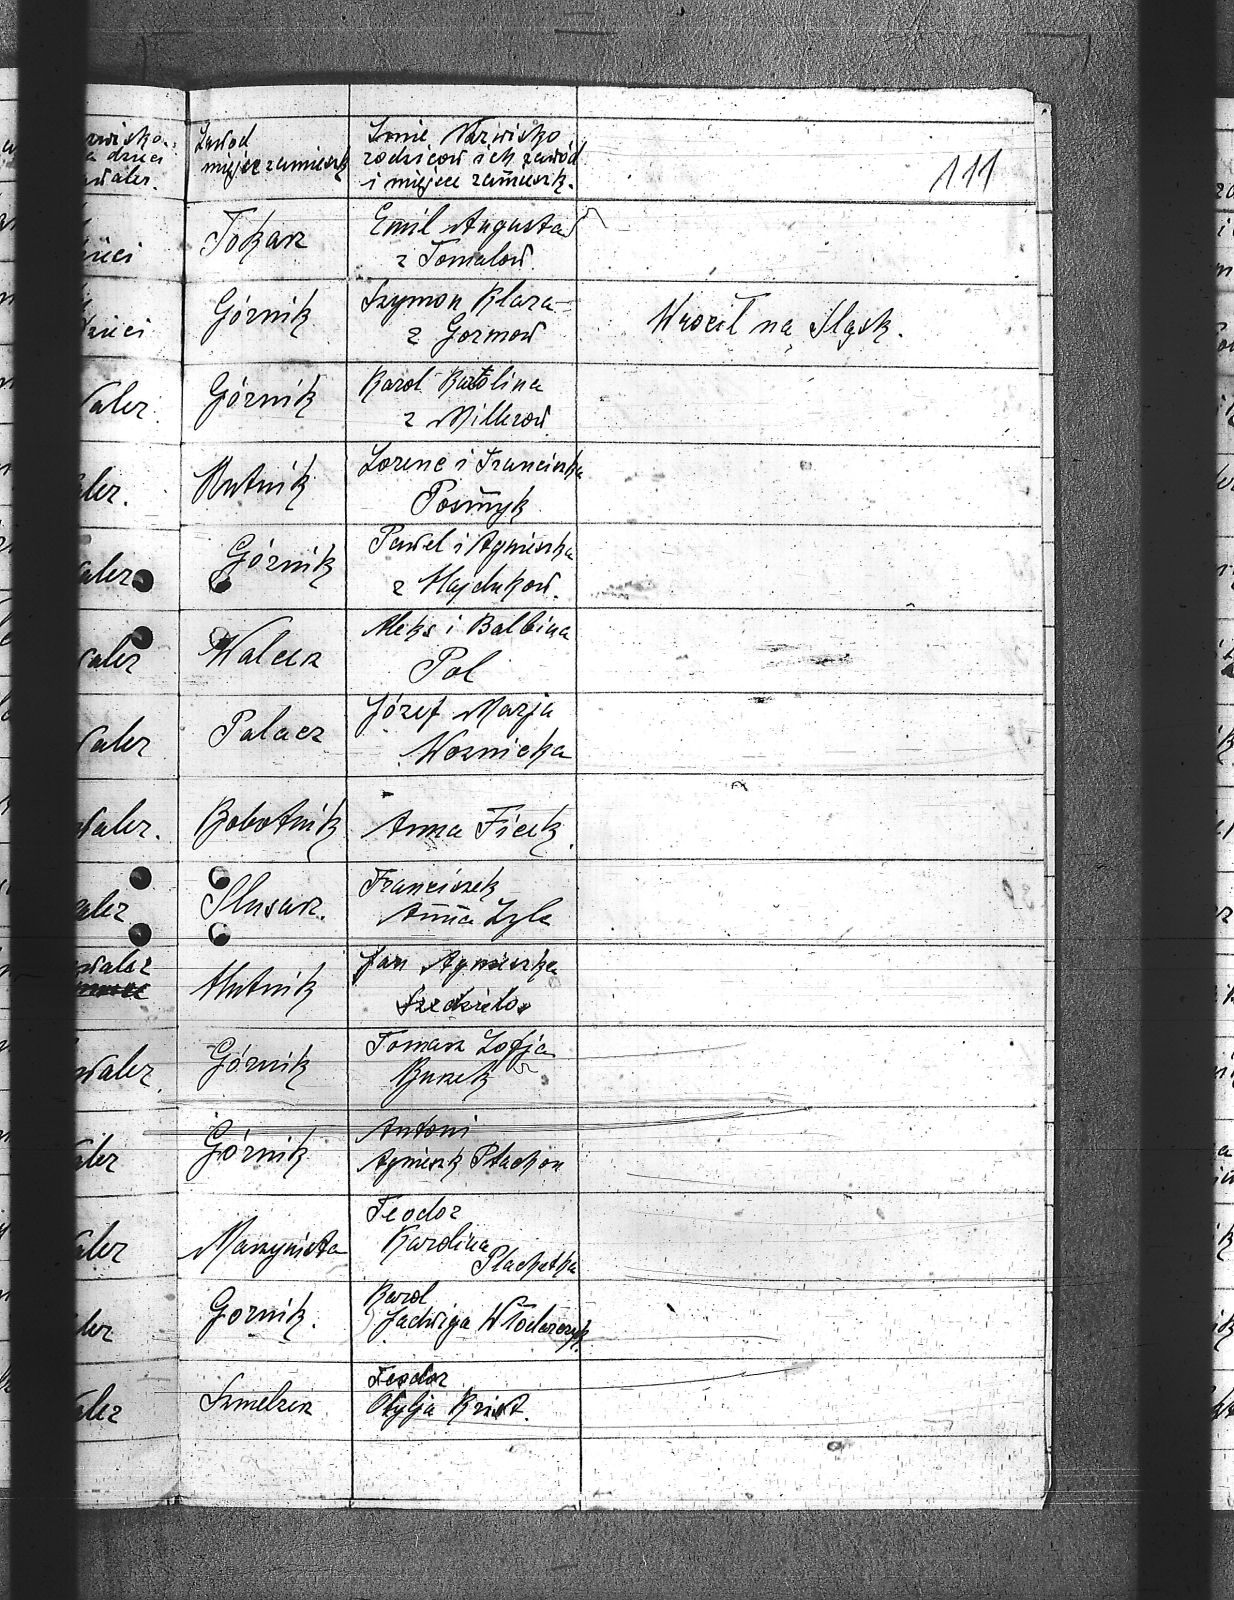 Zawód Imię Nazwisko
miejsce zamieszk rodziców ich zawód
i miejsce zamieszk.
111
Tokarz Emil Augusta
z Tomalów
Górnik Szymon Klara
z Gormów
Wrócił na Śląsk.
waler. Górnik Karol Karolina
z Millerów
aler. Hutnik Lorenc i Franciszka
Posmyk
waler Górnik Paweł i Agnieszka
z Hajduków.
waler Walcer Aleks i Balbina
Pol
waler Palacz Józef Marja
Woznicka
waler. Robotnik Anna Ficek
aler Slusarz. Franciszek
Anna Zyla
waler Hutnik Jan Agnieszka
waler. Górnik Tomasz Zofja
Buzek
aler Górnik Antoni
Agnieszk Płachon
aler Maszynista Teodor
Karolina
Plachetka
aler Gornik. Karol
Jadwiga Włodarczyk
aler Szmelzer Teodor
Otylja Krist.